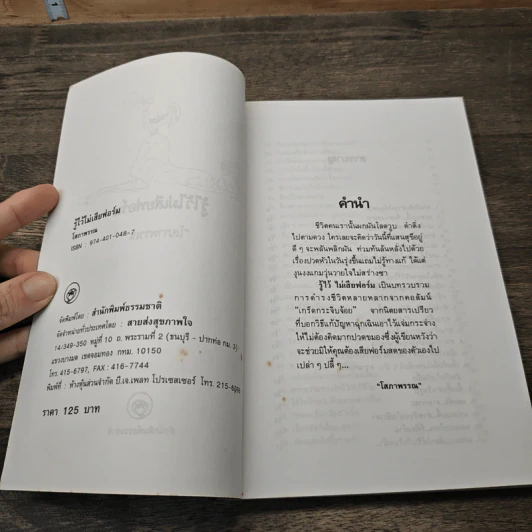 รู้ไว้ไม่เสียฟอร์ม
โสภาพรรณ
ISBN : 974-401-048-7
จัดพิมพ์โดย : สำนักพิมพ์ธรรมชาติ
จัดจำหน่ายทั่วประเทศโดย : สายส่งสุขภาพใจ
14/349-350 หมู่ที่ 10 ถ.พระรามที่ 2 (ธนบุรี - ปากท่อ กม. 5)
แขวงบางมด เขตจอมทอง กทม. 10150
โทร. 415-6797, FAX : 416-7744
พิมพ์ที่ : ห้างหุ้นส่วนจำกัด บี.เจ.เพลท โปรเซสเซอร์ โทร.
ราคา 125 บาท
คำนำ
ชีวิตคนเรานั้นผกผันโลดวูบ ดำดิ่ง
ไปตามดวง ใครเลยจะคิดว่าวันนี้ที่แสนสุขีอยู่
ดี ๆ จะพลันพลิกผัน ท่วมท้นล้นหลังไปด้วย
เรื่องปวดหัวในวันรุ่งขึ้นแถมไม่รู้ทางแก้ ได้แต่
งุนงงแกมวุ่นวายใจไม่สร่างซา
รู้ไว้ ไม่เสียฟอร์ม เป็นบทรวบรวม
การดำรงชีวิตหลายหลากจากคอลัมน์
"เกร็ดกระจิบจ้อย" จากนิตยสารเปรียว
ที่บอกวิธีแก้ปัญหาฉุกเฉินเอาไว้แจ่มกระจ่าง
ให้ไม่ต้องคิดมากปวดสมอง ซึ่งผู้เขียนหวังว่า
จะช่วยมิให้คุณต้องเสียฟอร์มสดของตัวเองไป
เปล่า ๆ ปลี้ ๆ...
"โสภาพรรณ"